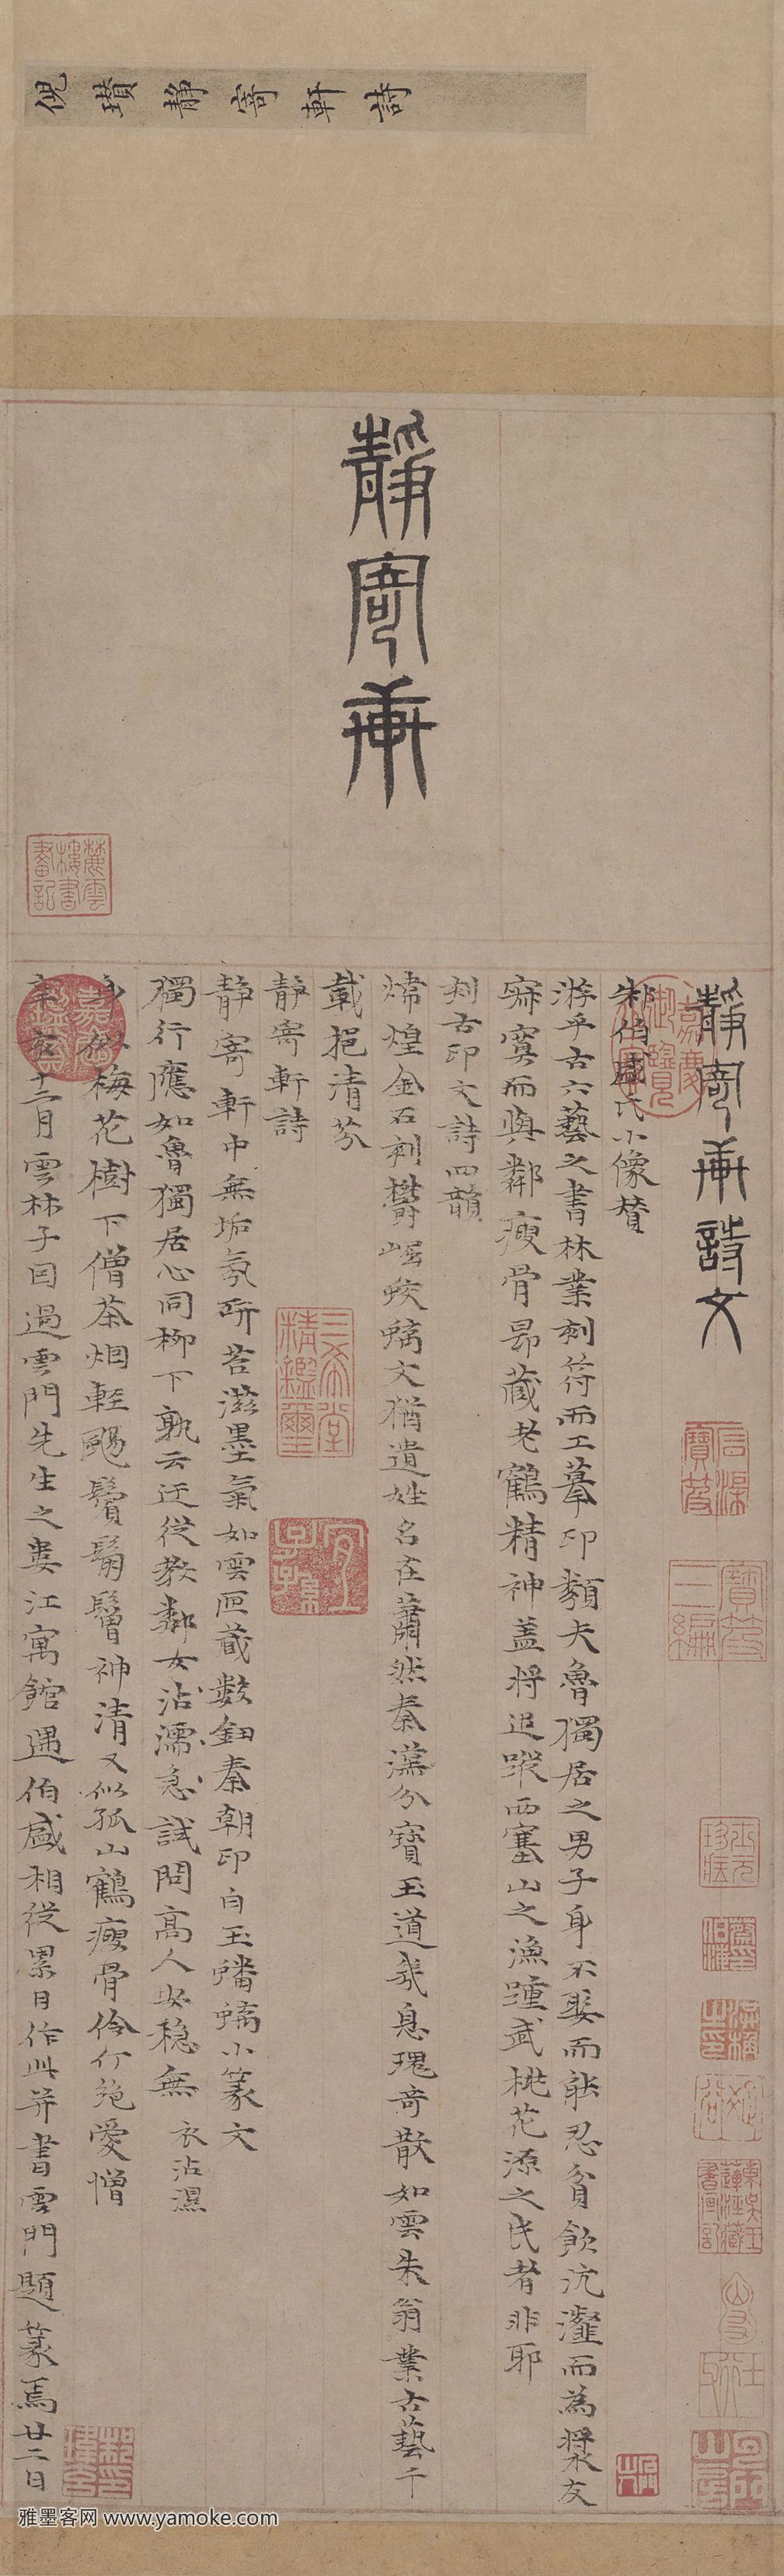 倪瓚靜寄軒詩
靜寄軒
靜寄軒詩文
朱伯盛氏小像贊
游乎古六藝之書林業刻符而工摹印類夫魯獨居之男子身不娶而能忍貧飲沆瀣而為漿友
寂寞而與鄰瘦骨昂藏老鶴精神蓋將追蹤西塞山之漁踵武桃花源之民者非耶
刻古印文詩四韻
煒煌金石刻鬱崛蛟螭文猶遺姓名在蕭然秦漢分寶玉道幾息瑰奇散如雲朱翁業古藝千
載挹清芬
靜寄軒詩
靜寄軒中無垢氛研苔滋墨氣如雲匣藏數鈕秦朝印白玉蟠螭小篆文
獨行應如魯獨居心同柳下孰云迂從教鄰女沾濡急試問高人安穩無 衣沾濕
身似梅花樹下僧茶烟輕颺鬢鬅鬙神清又似孤山鶴瘦骨伶仃絕愛憎
辛亥十二月雲林子因過雲門先生之婁江寓館遇伯盛相從累日作此并書雲門題篆焉廿二日
麓雲樓書畫記
嘉慶御覽之寶
嘉慶鑑賞
三希堂精鑑璽
宜子孫
寶笈三編
雅墨客网 www.yamoke.com